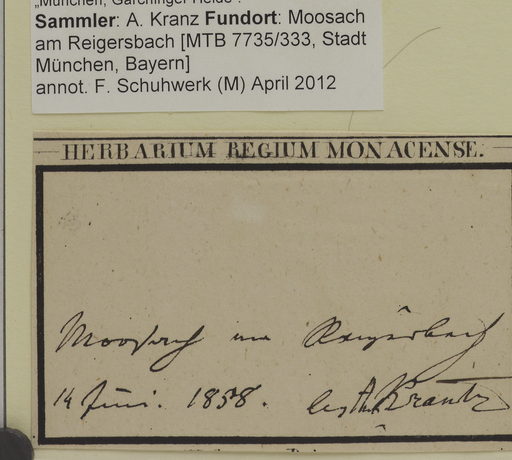 „München, Garchinger Heide“.
Sammler: A. Kranz Fundort: Moosach
am Reigersbach [MTB 7735/333, Stadt
München, Bayern]
annot. F. Schuhwerk (M) April 2012
HERBARIUM REGIUM MONACENSE.
Moosach am Reigersbach
14 Juni. 1858. A. Krantz